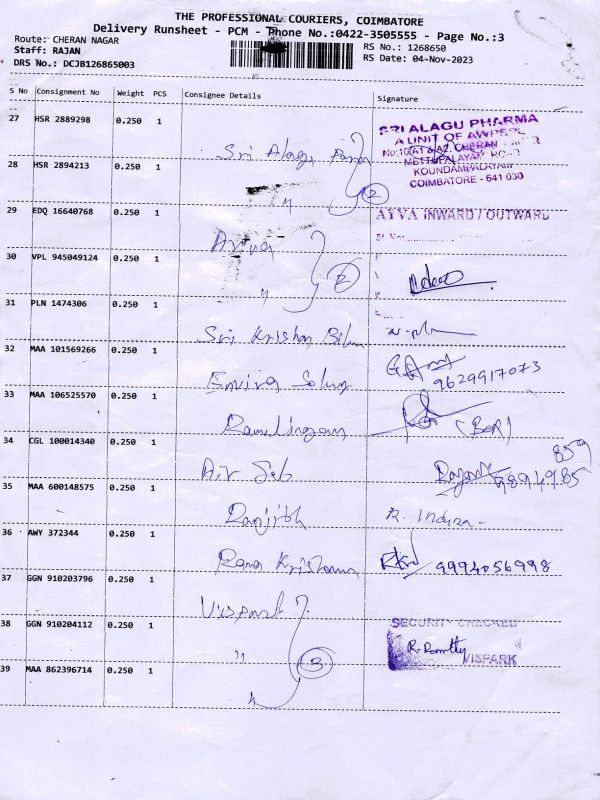 THE PROFESSIONAL COURIERS, COIMBATORE
Delivery Runsheet - PCM - Phone No.:0422-3505555 - Page No.:3
Route: CHERAN NAGAR
RS No.: 1268650
Staff: RAJAN
RS Date: 04-Nov-2023
DRS No.: DCJB126865003
S No Consignment No Weight PCS Consignee Details Signature
27 HSR 2889298 0.250 1
Sri Alagu
SRI ALAGU PHARMA
A UNIT OF
CHERAN
METTUPALAYAM ROAD
KOUNDAMPALAYAM
COIMBATORE - 641 030
28 HSR 2894213 0.250 1
" 2
29 EDQ 16640768 0.250 1
INWARD / OUTWARD
30 VPL 945049124 0.250 1
" 2
31 PLN 1474306 0.250 1
Sri Krishna
32 MAA 101569266 0.250 1
9629917073
33 MAA 106525570 0.250 1
Ramalingam
34 CGL 100014340 0.250 1
Air
859
9894985
35 MAA 600148575 0.250 1
Ranjith R. Indira
36 AWY 372344 0.250 1
Rama Krishna 9994056998
37 GGN 910203796 0.250 1
Vispark
38 GGN 910204112 0.250 1
" 3
SECURITY CHECKED
VISPARK
39 MAA 862396714 0.250 1